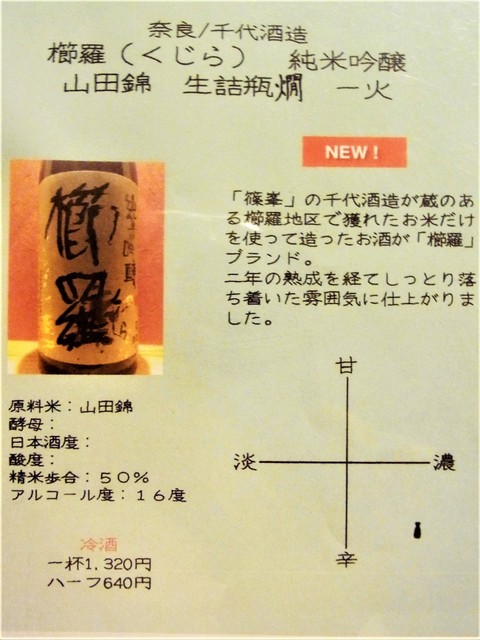 奈良/千代酒造
櫛羅（くじら）　純米吟醸
山田錦　生詰瓶燗　一火
NEW！
「篠峯」の千代酒造が蔵のあ
る櫛羅地区で獲れたお米だけ
を使って造ったお酒が「櫛羅」
ブランド。
二年の熟成を経てしっとり落
ち着いた雰囲気に仕上がりま
した。
櫛羅
くじら
純米吟醸
原料米：山田錦
酵母：
日本酒度：
酸度：
精米歩合：５０％
アルコール度：１６度
冷酒
一杯1,320円
ハーフ640円
甘
淡
濃
辛